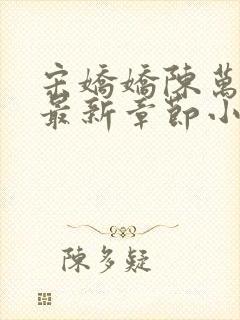 宋嬌嬌陳萬
最新章節小
陳多疑